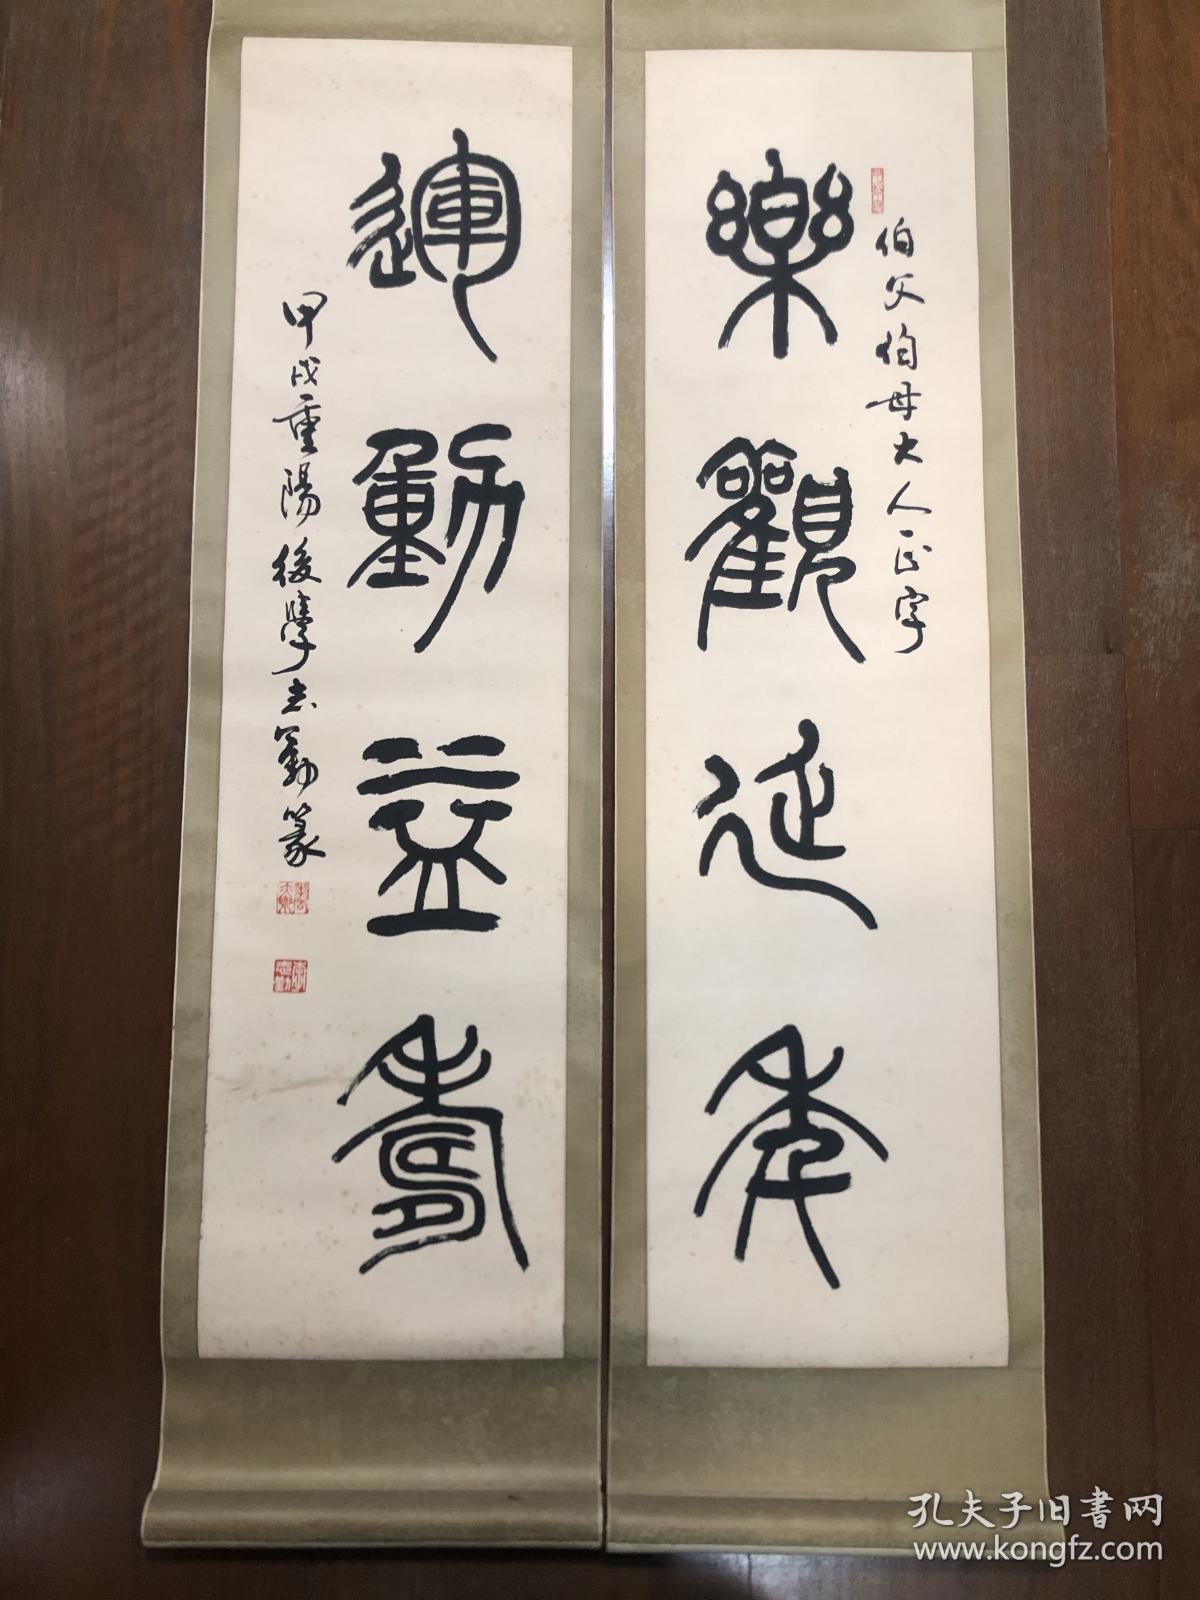 樂觀延年
伯父伯母大人正字
運動益壽
甲戌重陽後學志勤篆
孔夫子旧書网
www.kongfz.com